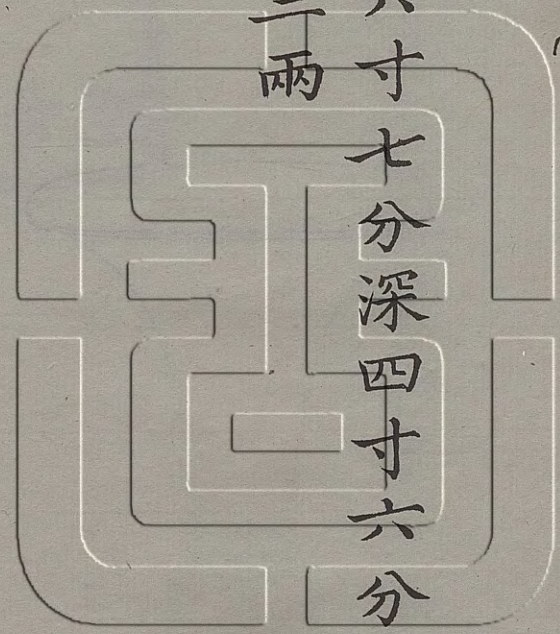 寸七分深四寸六分
二兩